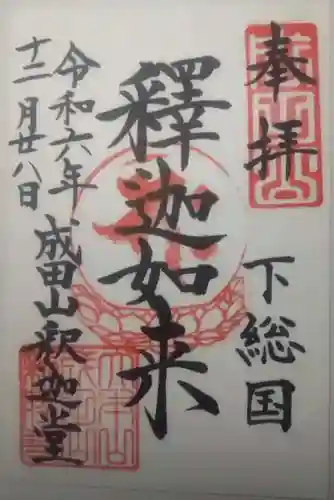 奉拝
下総国
釋迦如来
成田山釈迦堂
令和六年
十二月廿八日